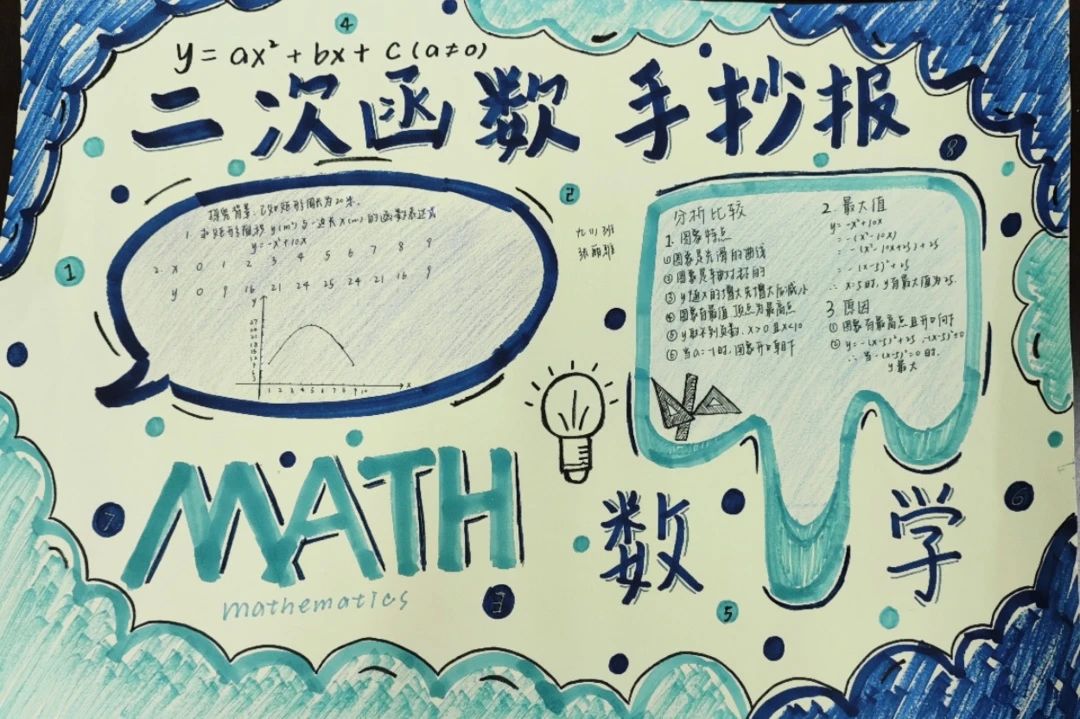 y=ax²+bx+c(a≠0)
二次函数 手抄报
探究背景:已知矩形周长为20米.
1. 求矩形面积y(m²)与一边长x(m)的函数表达式
y=-x²+10x
2. x 0 1 2 3 4 5 6 7 8 9
y 0 9 16 21 24 25 24 21 16 9
y
x
1 2 3 4 5 6 7 8 9 10
九(1)班
分析比较
1. 图象特点
①图象是光滑的曲线
②图象是轴对称的
③y随x的增大先增大后减小
④图象有最值,顶点为最高点
⑤y取不到负数,x>0且x<10
⑥当a=-1时,图象开口朝下
2. 最大值
y=-x²+10x
=-(x²-10x)
=-(x²-10x+25)+25
=-(x-5)²+25
∴ x=5时,y有最大值为25.
3. 原因
①图象有最高点且开口向下
②y=-(x-5)²+25,-(x-5)²≤0
∴当-(x-5)²=0时,
y最大
MATH
mathematics
数学
1
2
3
4
5
6
7
8